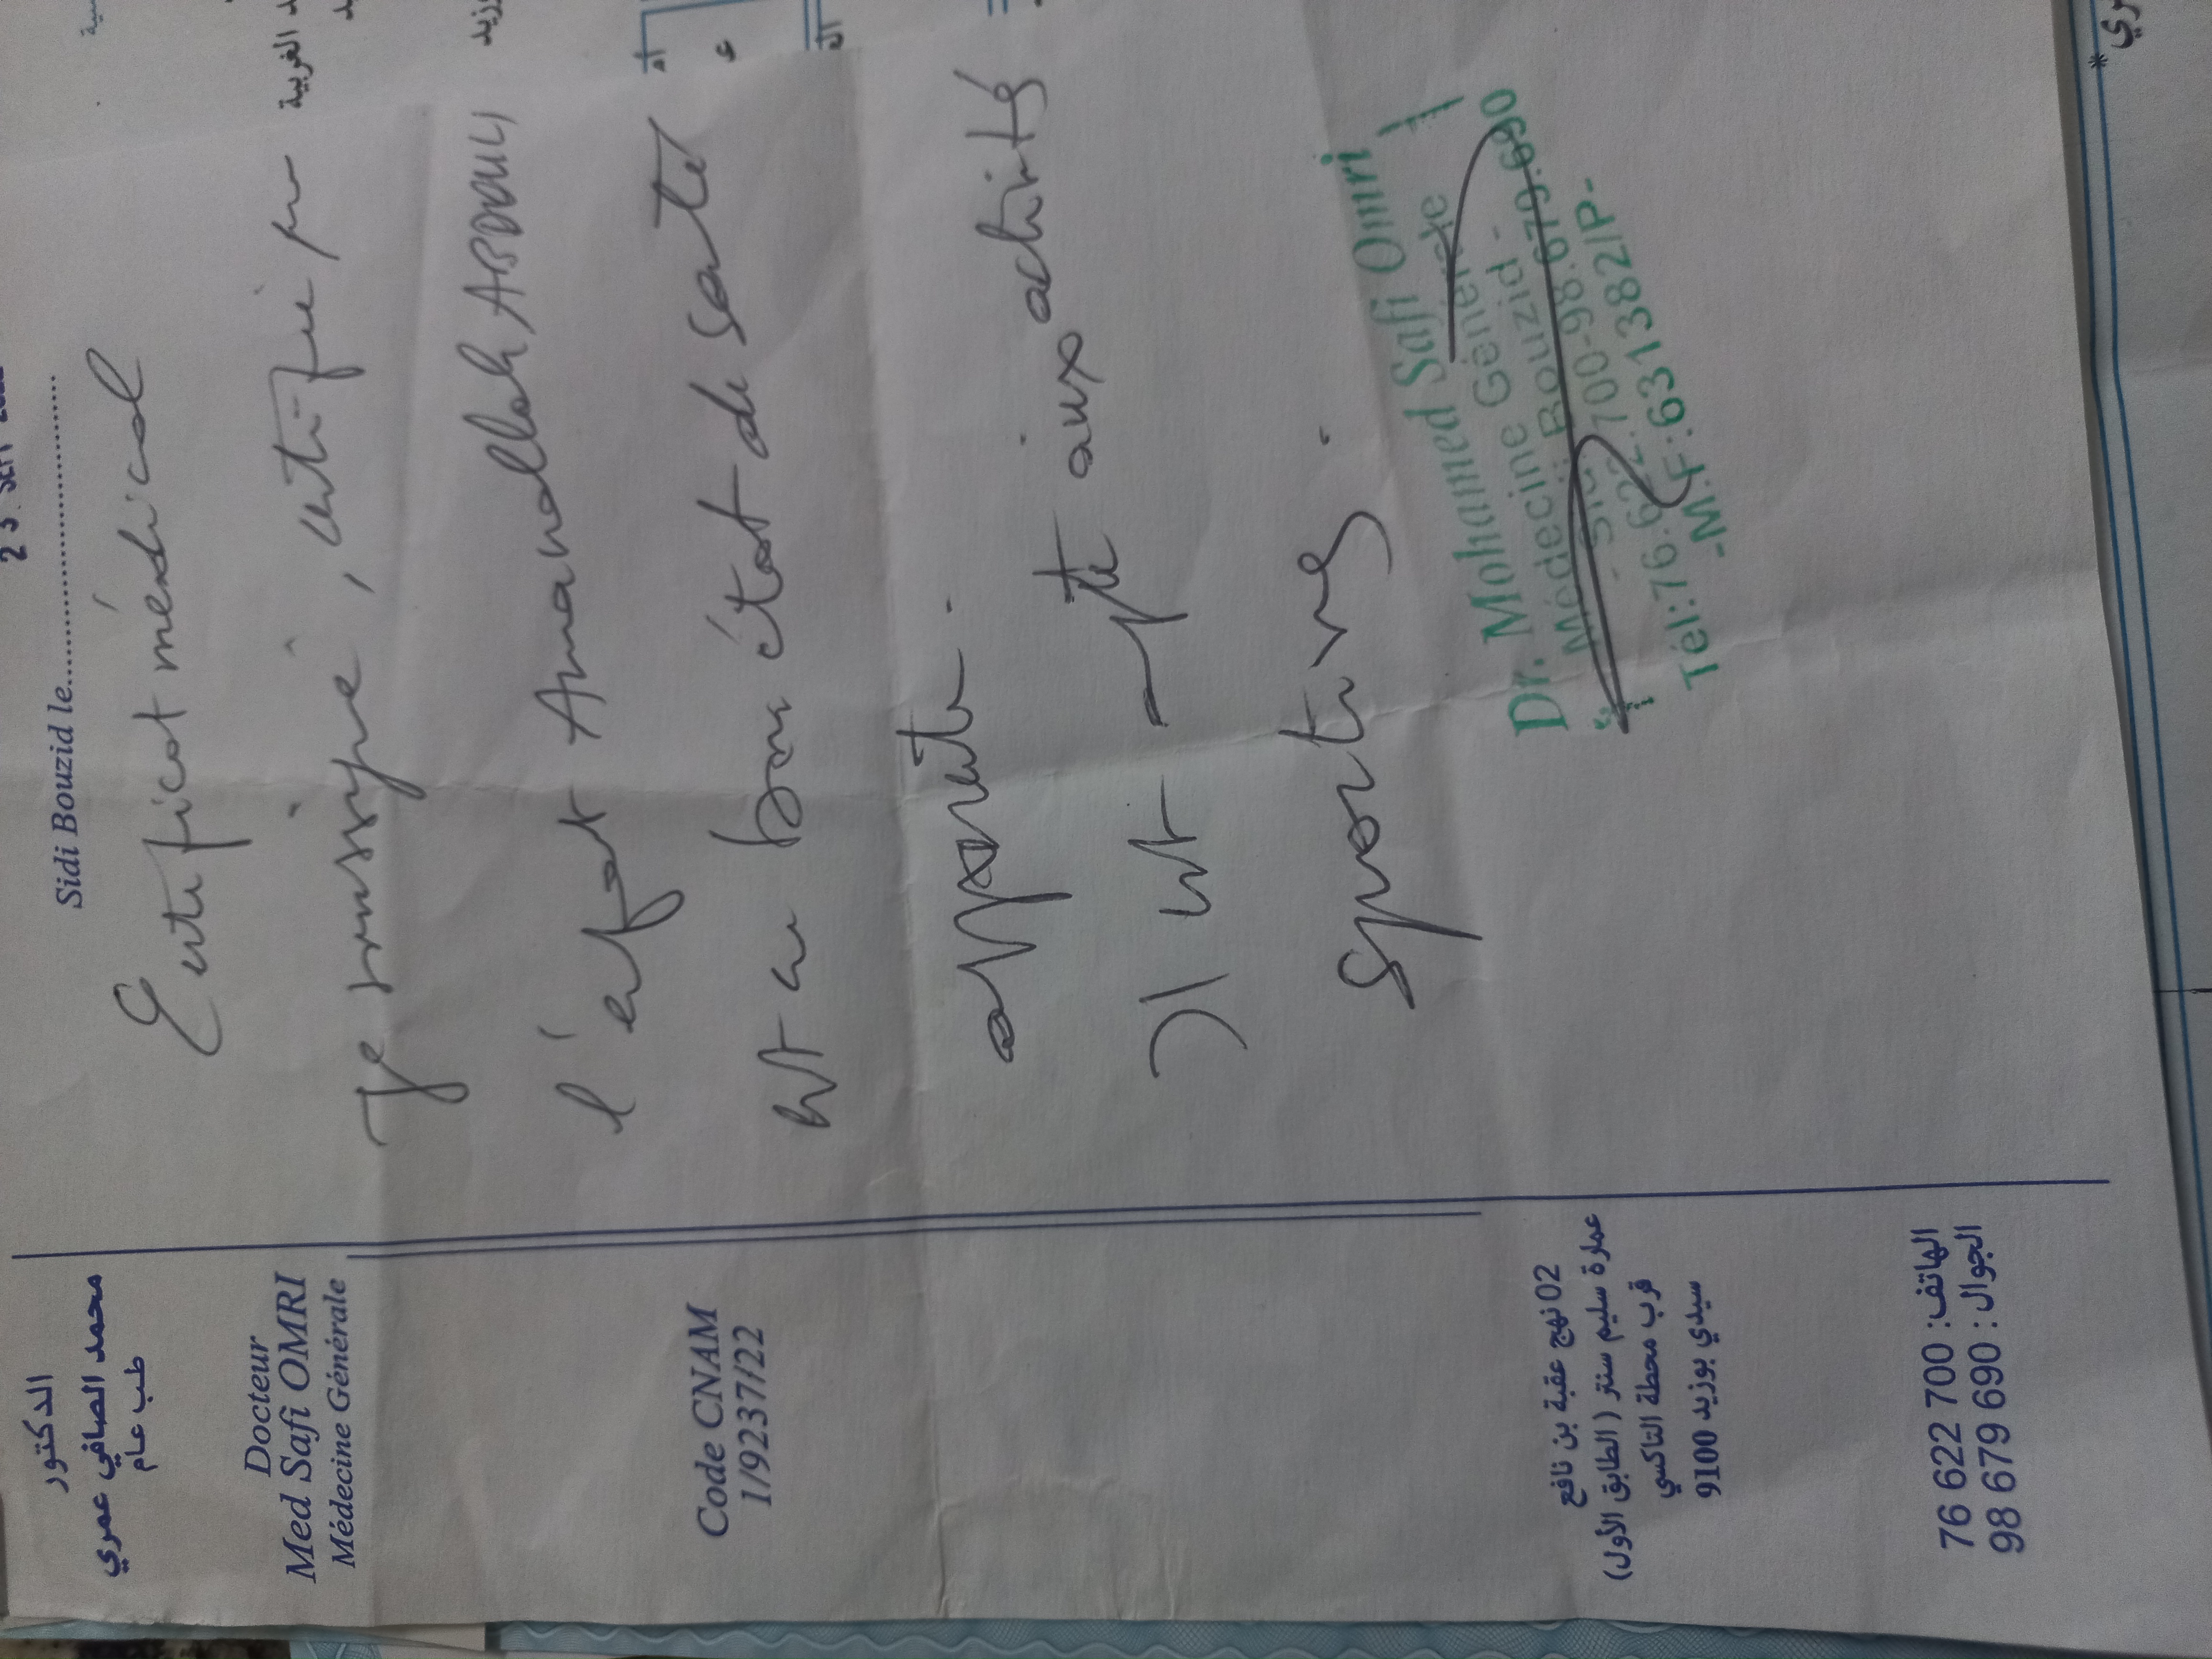 الدكتور
محمد الصافي عمري
طب عام
Docteur
Med Safi OMRI
Médecine Générale
Code CNAM
1/92237/22
02 نهج عقبة بن نافع
عمارة سليم سنتر ( الطابق الأول)
قرب محطة التاكسي
سيدي بوزيد 9100
الهاتف: 700 622 76
الجوال : 690 679 98
Sidi Bouzid le
Certificat médical
Je soussigné, certifie
l'enfant Amanallah ABDOULI
est en bon état de santé
apparente.
Il est apte aux activités
sportives.
Dr. Mohammed Safi Omri
Médecine Générale
- Sidi Bouzid -
Tél:76.622.700-98.679.690
-M.F:631382/P-
الغربية